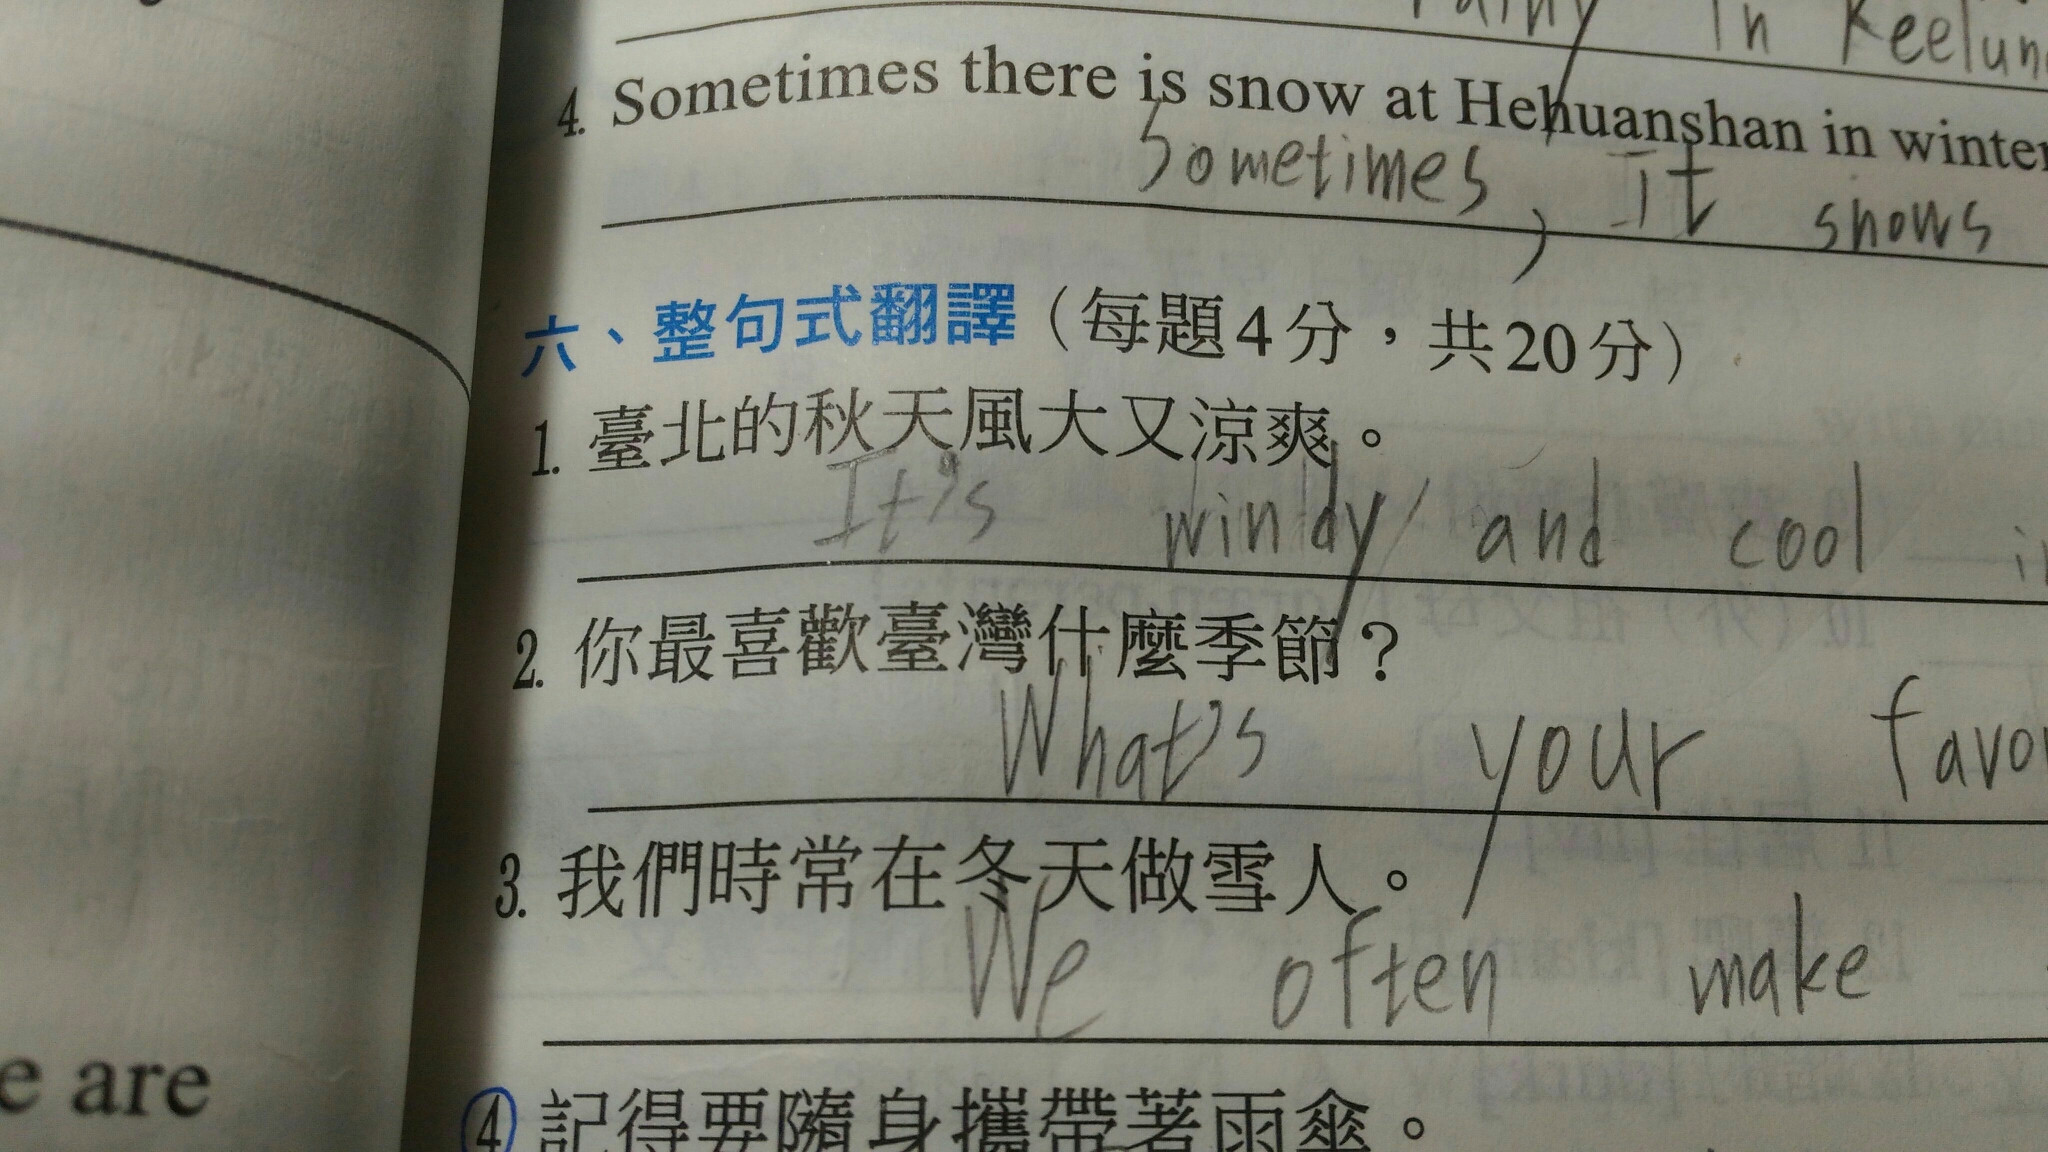 rainy in Keelung
4. Sometimes there is snow at Hehuanshan in winter
Sometimes, It snows
六、整句式翻譯（每題4分，共20分）
1. 臺北的秋天風大又涼爽。
It's windy and cool in
2. 你最喜歡臺灣什麼季節？
What's your favo
3. 我們時常在冬天做雪人。
We often make
e are
4 記得要隨身攜帶著雨傘。